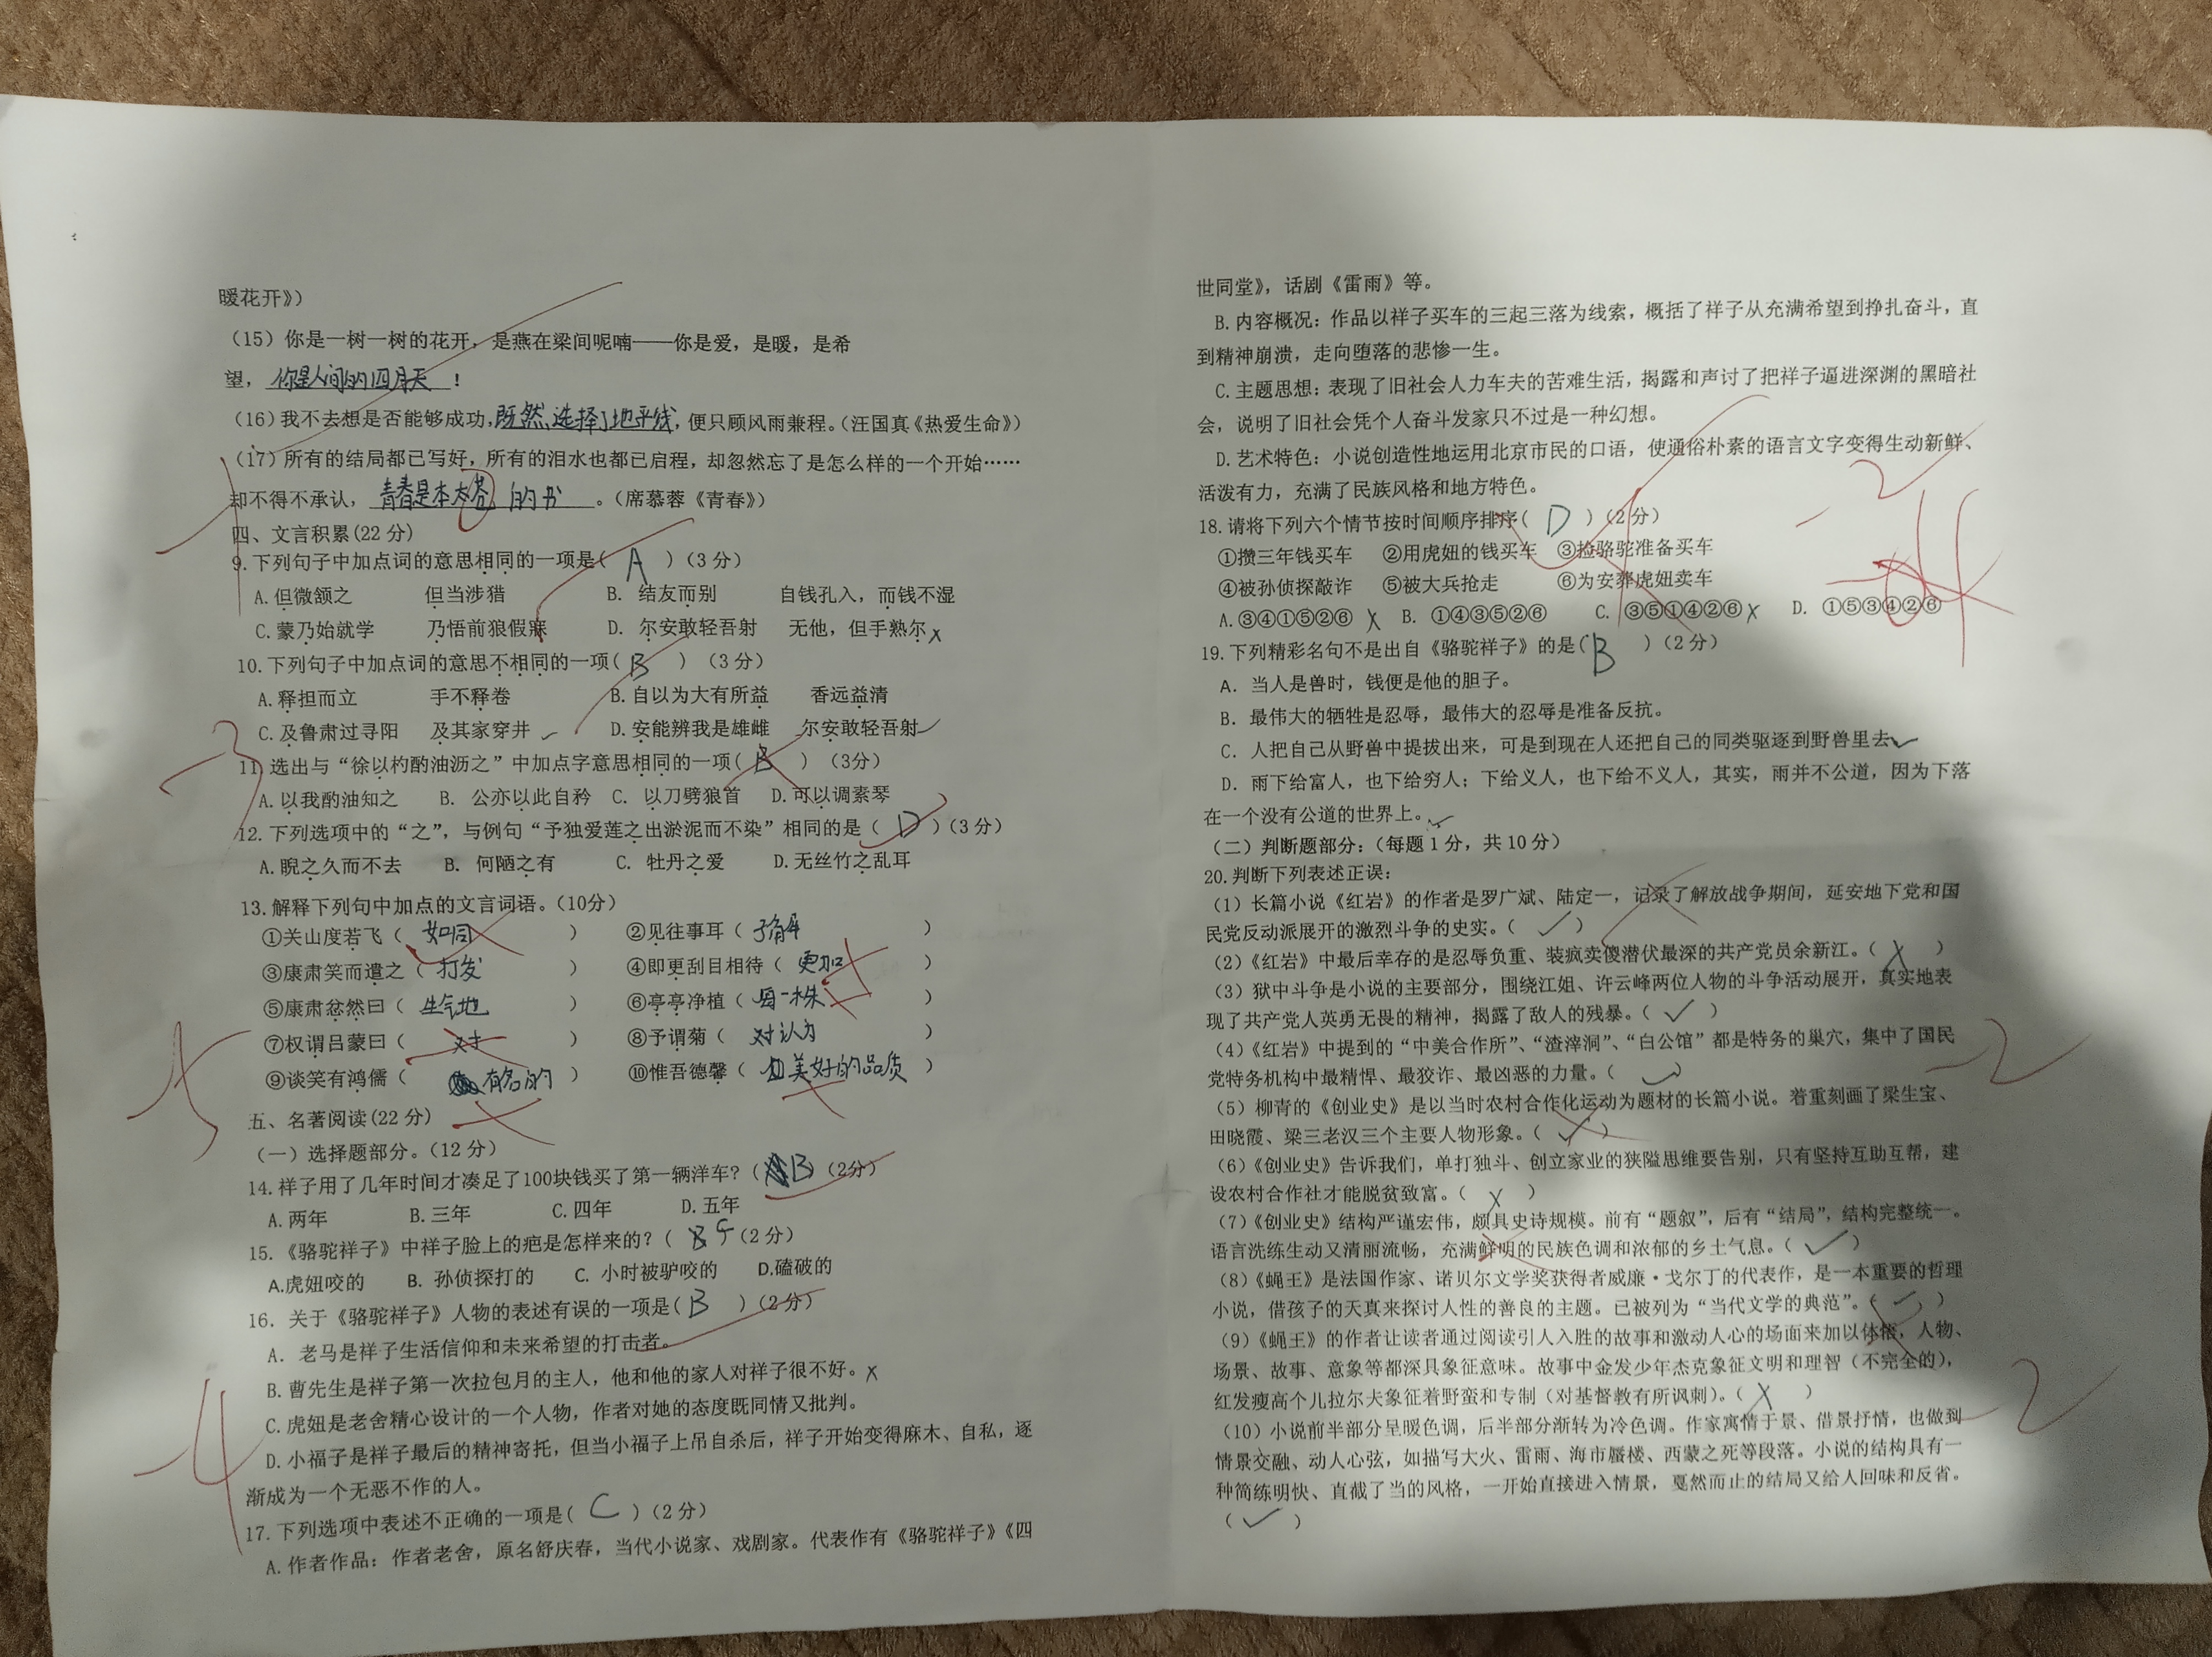 暖花开》）
（15）你是一树一树的花开，是燕在梁间呢喃——你是爱，是暖，是希
望，你是人间的四月天！
（16）我不去想是否能够成功，既然选择了地平线，便只顾风雨兼程。（汪国真《热爱生命》）
（17）所有的结局都已写好，所有的泪水也都已启程，却忽然忘了是怎么样的一个开始……
却不得不承认，青春是本太苍的书。（席慕蓉《青春》）
四、文言积累(22分)
9.下列句子中加点词的意思相同的一项是( A )（3分）
A.但微颔之 但当涉猎 B. 结友而别 自钱孔入，而钱不湿
C.蒙乃始就学 乃悟前狼假寐 D. 尔安敢轻吾射 无他，但手熟尔 x
10.下列句子中加点词的意思不相同的一项( B )（3分）
A.释担而立 手不释卷 B.自以为大有所益 香远益清
C.及鲁肃过寻阳 及其家穿井 ✓ D.安能辨我是雄雌 尔安敢轻吾射 ✓
11.选出与“徐以杓酌油沥之”中加点字意思相同的一项( B )（3分）
A.以我酌油知之 B. 公亦以此自矜 C. 以刀劈狼首 D.可以调素琴
12.下列选项中的“之”，与例句“予独爱莲之出淤泥而不染”相同的是( D )（3分）
A.睨之久而不去 B. 何陋之有 C. 牡丹之爱 D.无丝竹之乱耳
13.解释下列句中加点的文言词语。（10分）
①关山度若飞（ 如同 ） ②见往事耳（ 了解 ）
③康肃笑而遣之（ 打发 ） ④即更刮目相待（ 更加 ）
⑤康肃忿然曰（ 生气地 ） ⑥亭亭净植（ 每一株 ）
⑦权谓吕蒙曰（ 对 ） ⑧予谓菊（ 对认为 ）
⑨谈笑有鸿儒（ 有名的 ） ⑩惟吾德馨（ 美好的品质 ）
五、名著阅读(22分)
（一）选择题部分。（12分）
14.样子用了几年时间才凑足了100块钱买了第一辆洋车？（ B （2分）
A.两年 B.三年 C.四年 D.五年
15.《骆驼祥子》中祥子脸上的疤是怎样来的？（ （2分）
A.虎妞咬的 B. 孙侦探打的 C. 小时被驴咬的 D.磕破的
16. 关于《骆驼祥子》人物的表述有误的一项是( B )（2分）
A. 老马是祥子生活信仰和未来希望的打击者。
B.曹先生是祥子第一次拉包月的主人，他和他的家人对祥子很不好。x
C.虎妞是老舍精心设计的一个人物，作者对她的态度既同情又批判。
D.小福子是祥子最后的精神寄托，但当小福子上吊自杀后，祥子开始变得麻木、自私，逐
渐成为一个无恶不作的人。
17.下列选项中表述不正确的一项是( C )（2分）
A.作者作品：作者老舍，原名舒庆春，当代小说家、戏剧家。代表作有《骆驼祥子》《四
世同堂》，话剧《雷雨》等。
B.内容概况：作品以祥子买车的三起三落为线索，概括了祥子从充满希望到挣扎奋斗，直
到精神崩溃，走向堕落的悲惨一生。
C.主题思想：表现了旧社会人力车夫的苦难生活，揭露和声讨了把祥子逼进深渊的黑暗社
会，说明了旧社会凭个人奋斗发家只不过是一种幻想。
D.艺术特色：小说创造性地运用北京市民的口语，使通俗朴素的语言文字变得生动新鲜、
活泼有力，充满了民族风格和地方特色。
18.请将下列六个情节按时间顺序排序( D )（2分）
①攒三年钱买车 ②用虎妞的钱买车 ③捡骆驼准备买车
④被孙侦探敲诈 ⑤被大兵抢走 ⑥为安葬虎妞卖车
A.③④①⑤②⑥ x B. ①④③⑤②⑥ C. ③⑤①④②⑥ x D. ①⑤③④②⑥
19.下列精彩名句不是出自《骆驼祥子》的是( B )（2分）
A. 当人是兽时，钱便是他的胆子。
B. 最伟大的牺牲是忍辱，最伟大的忍辱是准备反抗。
C. 人把自己从野兽中提拔出来，可是到现在人还把自己的同类驱逐到野兽里去 ✓
D. 雨下给富人，也下给穷人；下给义人，也下给不义人，其实，雨并不公道，因为下落
在一个没有公道的世界上。✓
（二）判断题部分：（每题1分，共10分）
20.判断下列表述正误：
（1）长篇小说《红岩》的作者是罗广斌、陆定一，记录了解放战争期间，延安地下党和国
民党反动派展开的激烈斗争的史实。（ ✓ ）
（2）《红岩》中最后幸存的是忍辱负重、装疯卖傻潜伏最深的共产党员余新江。（ X ）
（3）狱中斗争是小说的主要部分，围绕江姐、许云峰两位人物的斗争活动展开，真实地表
现了共产党人英勇无畏的精神，揭露了敌人的残暴。（ ✓ ）
（4）《红岩》中提到的“中美合作所”、“渣滓洞”、“白公馆”都是特务的巢穴，集中了国民
党特务机构中最精悍、最狡诈、最凶恶的力量。（ ✓ ）
（5）柳青的《创业史》是以当时农村合作化运动为题材的长篇小说。着重刻画了梁生宝、
田晓霞、梁三老汉三个主要人物形象。（ ✓ ）
（6）《创业史》告诉我们，单打独斗、创立家业的狭隘思维要告别，只有坚持互助互帮，建
设农村合作社才能脱贫致富。（ X ）
（7）《创业史》结构严谨宏伟，颇具史诗规模。前有“题叙”，后有“结局”，结构完整统一。
语言洗练生动又清丽流畅，充满鲜明的民族色调和浓郁的乡土气息。（ ✓ ）
（8）《蝇王》是法国作家、诺贝尔文学奖获得者威廉·戈尔丁的代表作，是一本重要的哲理
小说，借孩子的天真来探讨人性的善良的主题。已被列为“当代文学的典范”。（ ✓ ）
（9）《蝇王》的作者让读者通过阅读引人入胜的故事和激动人心的场面来加以体悟，人物、
场景、故事、意象等都深具象征意味。故事中金发少年杰克象征文明和理智（不完全的），
红发瘦高个儿拉尔夫象征着野蛮和专制（对基督教有所讽刺）。（ X ）
（10）小说前半部分呈暖色调，后半部分渐转为冷色调。作家寓情于景、借景抒情，也做到
情景交融、动人心弦，如描写大火、雷雨、海市蜃楼、西蒙之死等段落。小说的结构具有一
种简练明快、直截了当的风格，一开始直接进入情景，戛然而止的结局又给人回味和反省。
（ ✓ ）